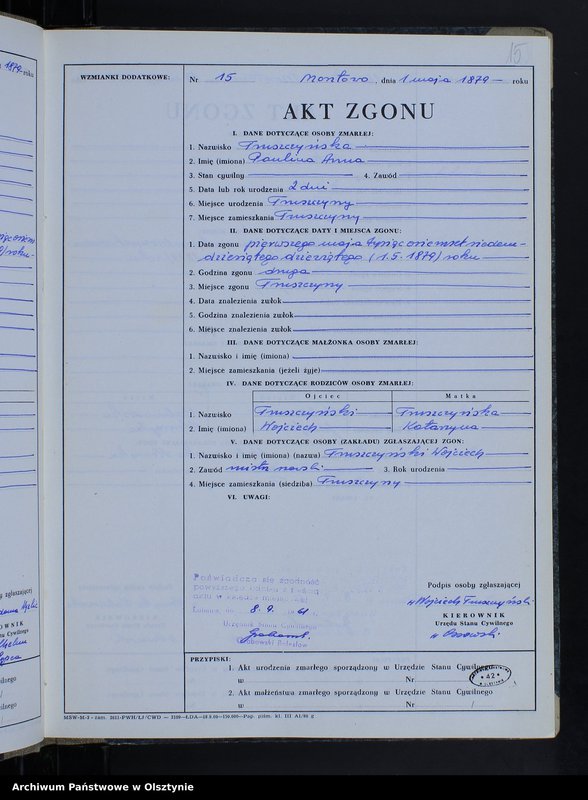 15
1879 roku
WZMIANKI DODATKOWE:
Nr 15 Montowo, dnia 1 maja 1879 — roku
AKT ZGONU
I. DANE DOTYCZĄCE OSOBY ZMARŁEJ:
1. Nazwisko Truszczyńska
2. Imię (imiona) Paulina Anna
3. Stan cywilny 4. Zawód
5. Data lub rok urodzenia 2 dni
6. Miejsce urodzenia Truszczyny
7. Miejsce zamieszkania Truszczyny
II. DANE DOTYCZĄCE DATY I MIEJSCA ZGONU:
1. Data zgonu pierwszego maja tysiąc osiemset siedem-
dziesiątego dziewiątego (1.5.1879) roku
2. Godzina zgonu druga
3. Miejsce zgonu Truszczyny
4. Data znalezienia zwłok
5. Godzina znalezienia zwłok
6. Miejsce znalezienia zwłok
III. DANE DOTYCZĄCE MAŁŻONKA OSOBY ZMARŁEJ:
1. Nazwisko i imię (imiona)
2. Miejsce zamieszkania (jeżeli żyje)
IV. DANE DOTYCZĄCE RODZICÓW OSOBY ZMARŁEJ:
Ojciec Matka
1. Nazwisko Truszczyński Truszczyńska
2. Imię (imiona) Wojciech Katarzyna
V. DANE DOTYCZĄCE OSOBY (ZAKŁADU) ZGŁASZAJĄCEJ ZGON:
1. Nazwisko i imię (imiona) (nazwa) Truszczyński Wojciech
2. Zawód 3. Rok urodzenia
4. Miejsce zamieszkania (siedziba) Truszczyny
VI. UWAGI:
Poświadcza się zgodność
powyższego
8. 9. 1961
Urzędnik Stanu Cywilnego
Podpis osoby zgłaszającej
Wojciech Truszczyński
KIEROWNIK
Urzędu Stanu Cywilnego
PRZYPISKI:
1. Akt urodzenia zmarłego sporządzony w Urzędzie Stanu Cywilnego
w Nr
2. Akt małżeństwa zmarłego sporządzony w Urzędzie Stanu Cywilnego
w Nr /
42
Archiwum Państwowe w Olsztynie